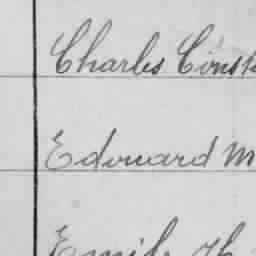 Charles Const
Edouard M
Emile Th